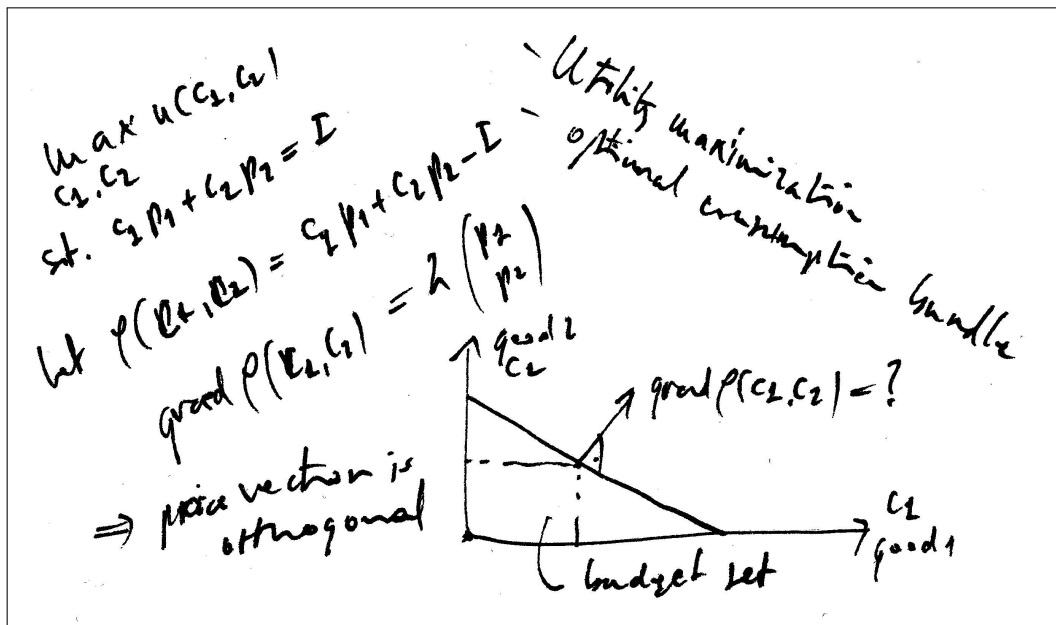 max u(c₁,c₂)
c₁,c₂
s.t. c₁p₁ + c₂p₂ = I
let φ(c₁,c₂) = c₁p₁ + c₂p₂ - I
grad φ(c₁,c₂) = λ (p₁ p₂)
⇒ price vector is
orthogonal
- Utility maximization
- optimal consumption bundle
good 2
c₂
grad φ(c₁,c₂) = ?
c₁
good 1
budget set